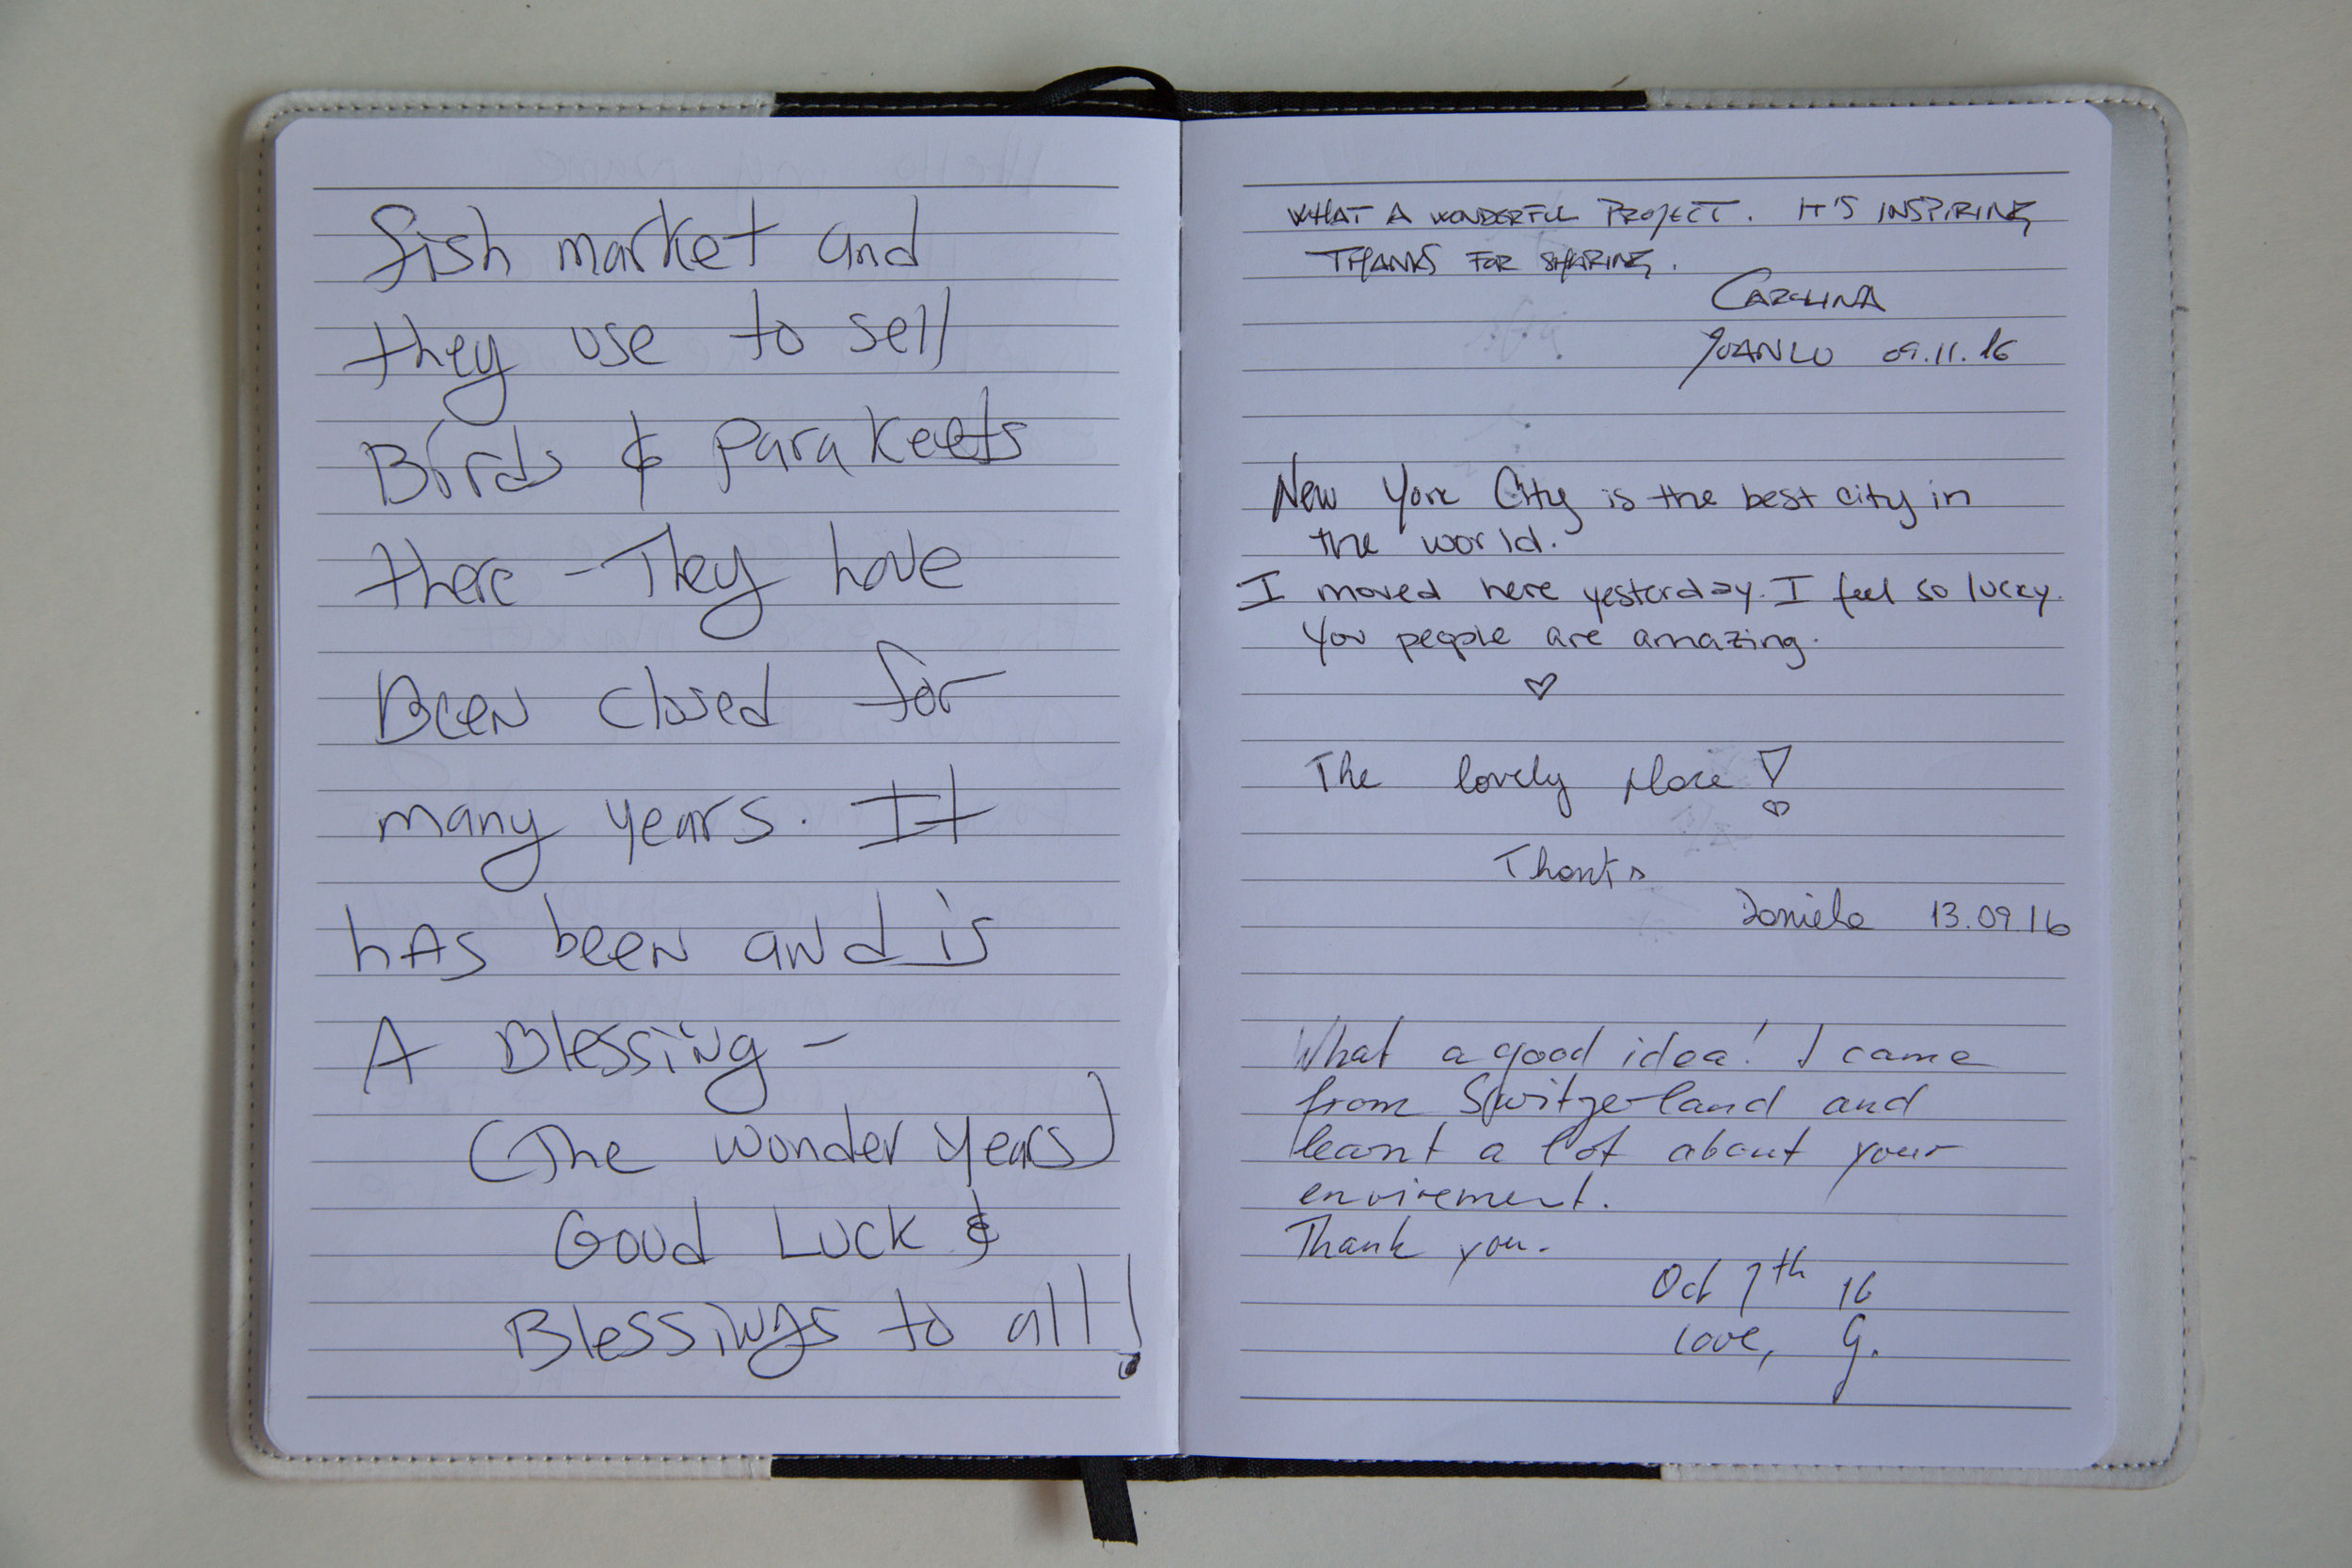 fish market and
they use to sell
Birds & parakeets
there - They have
Been closed for
many years. It
hAs been and is
A Blessing -
(The wonder years)
Good Luck &
Blessings to all!
WHAT A WONDERFUL PROJECT. IT'S INSPIRING
THANKS FOR SHARING.
CAROLINA
JUANLU 09.11.16
New York City is the best city in
the world.
I moved here yesterday. I feel so lucky.
You people are amazing.
♡
The lovely place!
Thanks
Daniela 13.09.16
What a good idea! I came
from Switzerland and
learnt a lot about your
envirement.
Thank you.
Oct 7th 16
love, G.